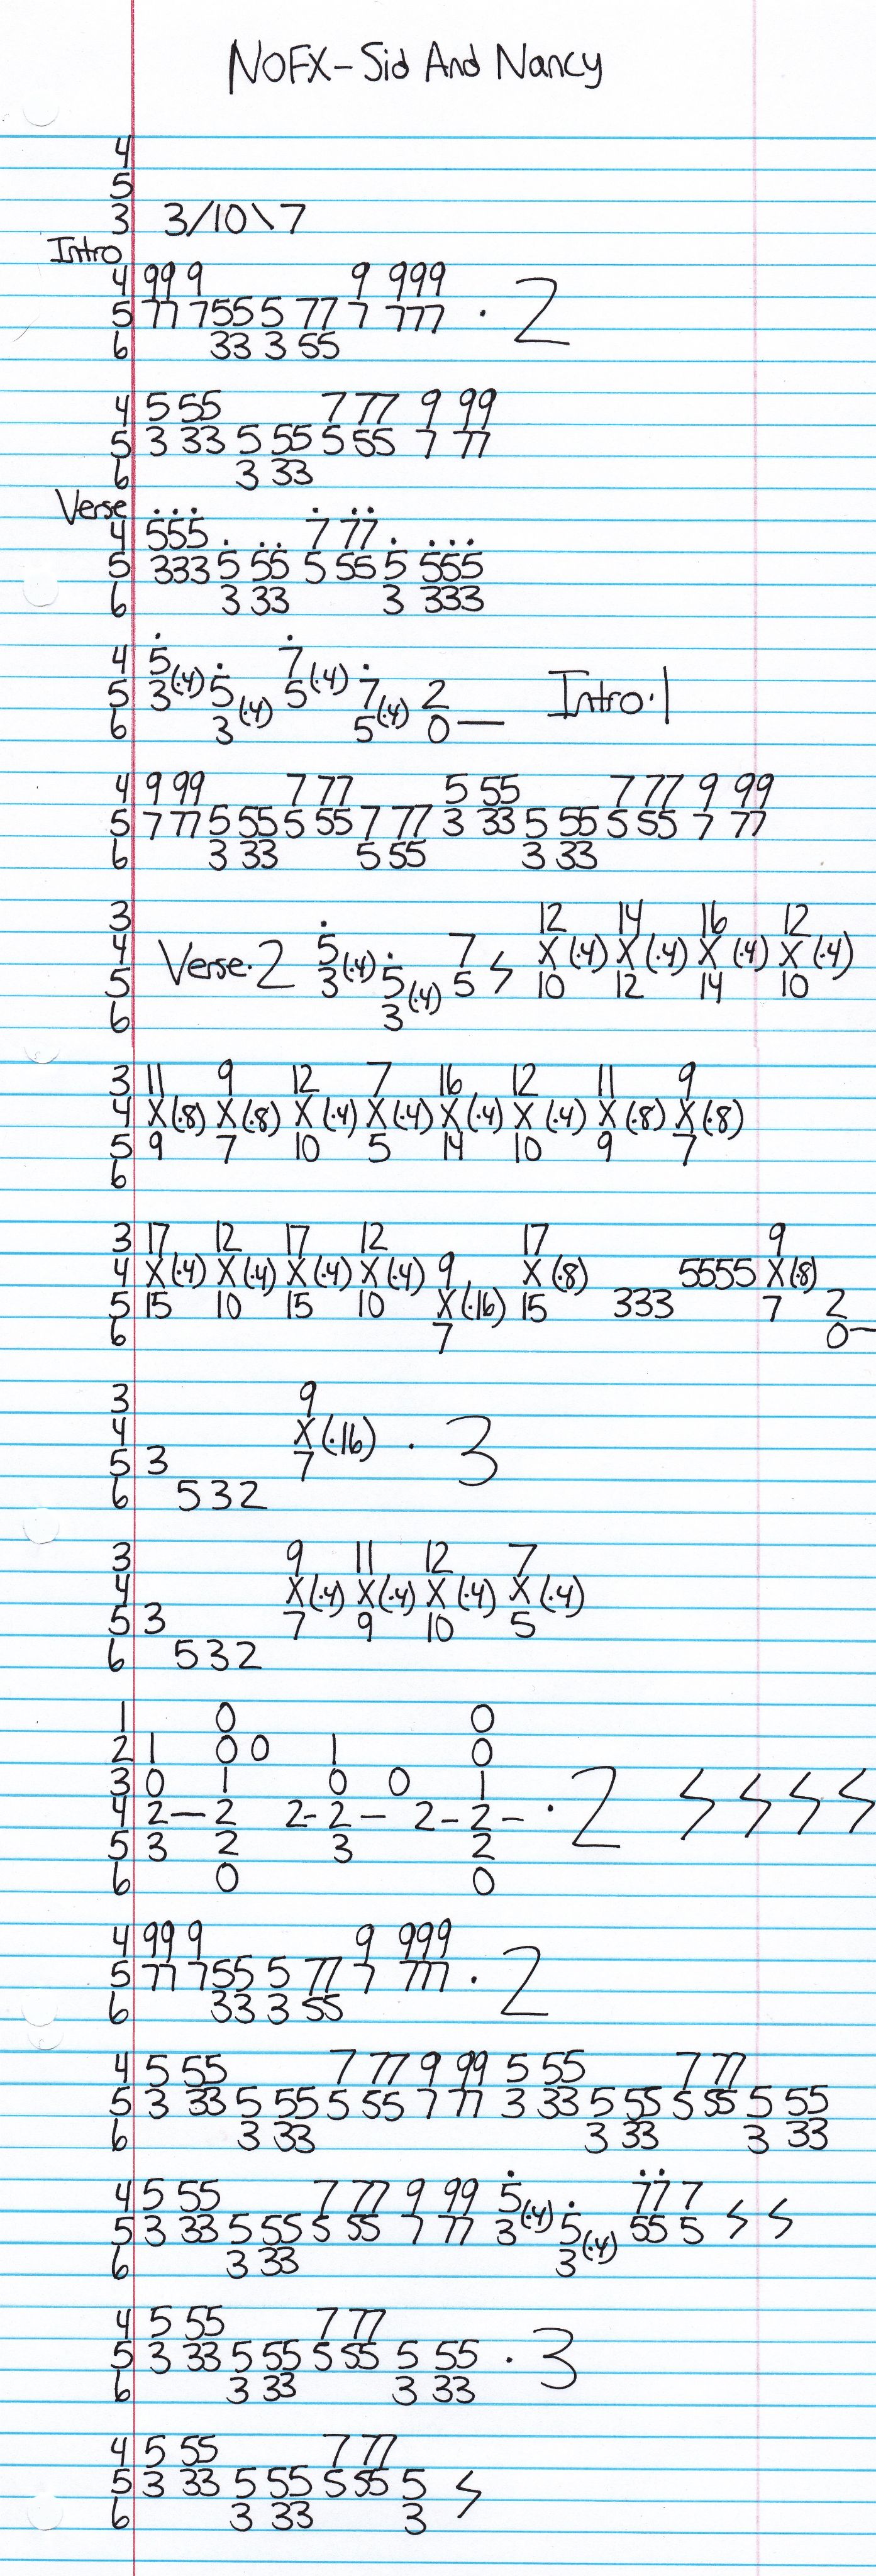 NOFX - Sid And Nancy
4
5
3 3/10\7
Intro
4 99 9 9 999
5 77 755 5 77 7 777 · 2
6 33 3 55
4 5 55 7 77 9 99
5 3 33 5 55 5 55 7 77
6 3 33
Verse
4 555 7 77
5 333 5 55 5 55 5 555
6 3 33 3 333
4 5 7
5 3(·4) 5 5(·4) 7 2 Intro·1
6 3(·4) 5(·4) 0—
4 9 99 7 77 5 55 7 77 9 99
5 7 77 5 55 5 55 7 77 3 33 5 55 5 55 7 77
6 3 33 5 55 3 33
3 12 14 16 12
4 Verse·2 5 7 X(·4) X(·4) X(·4) X(·4)
5 3(·4) 5 5 10 12 14 10
6 3(·4)
3 11 9 12 7 16 12 11 9
4 X(·8) X(·8) X(·4) X(·4) X(·4) X(·4) X(·8) X(·8)
5 9 7 10 5 14 10 9 7
6
3 17 12 17 12 17 9
4 X(·4) X(·4) X(·4) X(·4) 9 X(·8) 5555 X(·8)
5 15 10 15 10 X(·16) 15 333 7 2
6 7 0—
3 9
4 X(·16) · 3
5 3 7
6 532
3 9 11 12 7
4 X(·4) X(·4) X(·4) X(·4)
5 3 7 9 10 5
6 532
1 0 0
2 1 0 0 1 0
3 0 1 0 0 1
4 2—2 2-2— 2-2- · 2
5 3 2 3 2
6 0 0
4 99 9 9 999
5 77 755 5 77 7 777 · 2
6 33 3 55
4 5 55 7 77 9 99 5 55 7 77
5 3 33 5 55 5 55 7 77 3 33 5 55 5 55 5 55
6 3 33 3 33 3 33
4 5 55 7 77 9 99 5 77 7
5 3 33 5 55 5 55 7 77 3(·4) 5 55 5
6 3 33 3(·4)
4 5 55 7 77
5 3 33 5 55 5 55 5 55 · 3
6 3 33 3 33
4 5 55 7 77
5 3 33 5 55 5 55 5
6 3 33 3